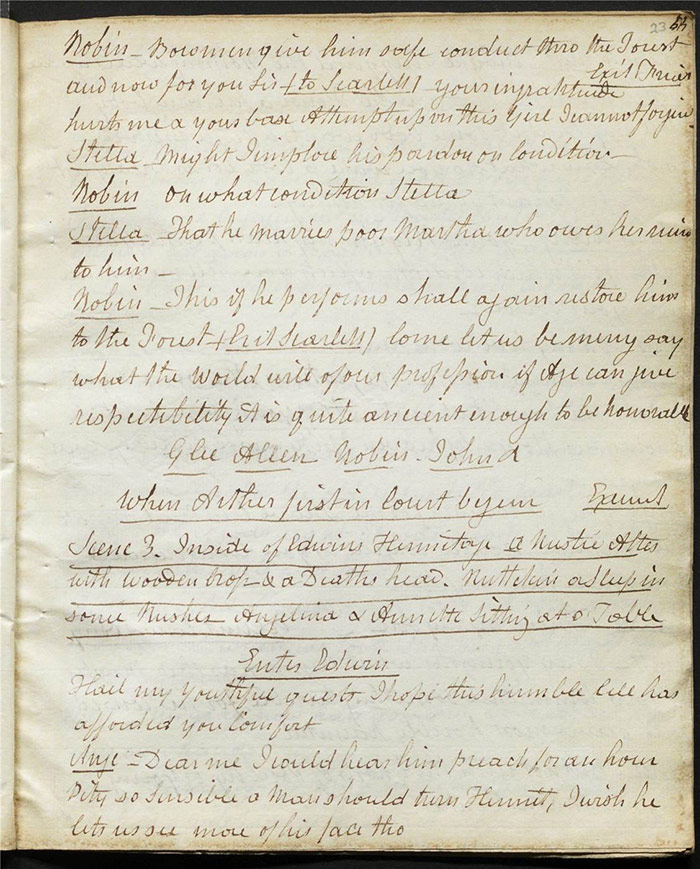 23 55
Robin - Bowmen give him safe conduct thro the Forest
Exit Friar
and now for you Sir (to Scarlett) your ingratitude
hurts me & your base Attempt upon this Girl I cannot forgive
Stella - Might I implore his pardon on Condition -
Robin on what condition Stella
Stella - That he marries poor Martha who owes her ruin
to him -
Robin - This if he performs shall again restore him
to the Forest (Exit Scarlett) Come let us be merry say
what the World will of our profession if Age can give
respectibility it is quite ancient enough to be honorable
Glee Allen Robin - John &
When Arther first in Court began Exeunt
Scene 3. Inside of Edwins Hermitage a Rustic Alter
with Wooden Cross & a Deaths head. Ruttekin asleep in
some Rushes Angelina & Annette Sitting at a Table
Enter Edwin
Hail my youthful guests I hope this humble Cell has
afforded you Comfort
Ange - Dear me I could hear him preach for an hour
Pity so Sensible a Man should turn Hermit, I wish he
lets us see more of his face tho